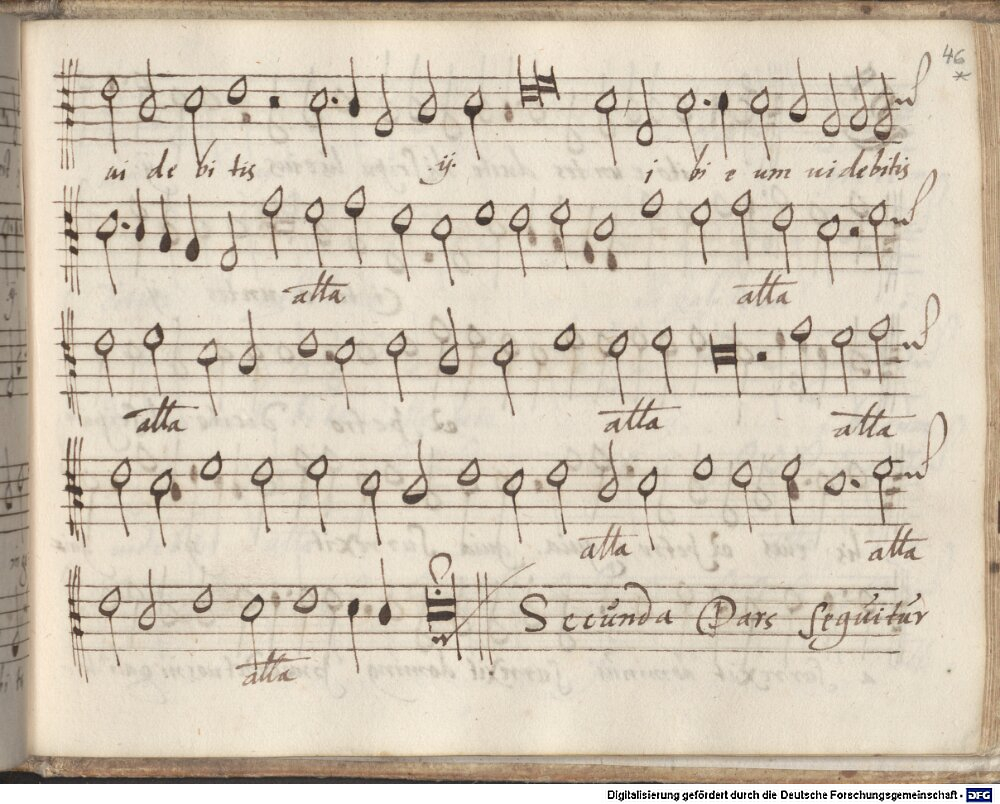 46
*
ui de bi tis ij. i bi e um ui debitis
alla alla
alla alla alla
alla alla
alla Secunda Pars sequitur
Digitalisierung gefördert durch die Deutsche Forschungsgemeinschaft - DFG